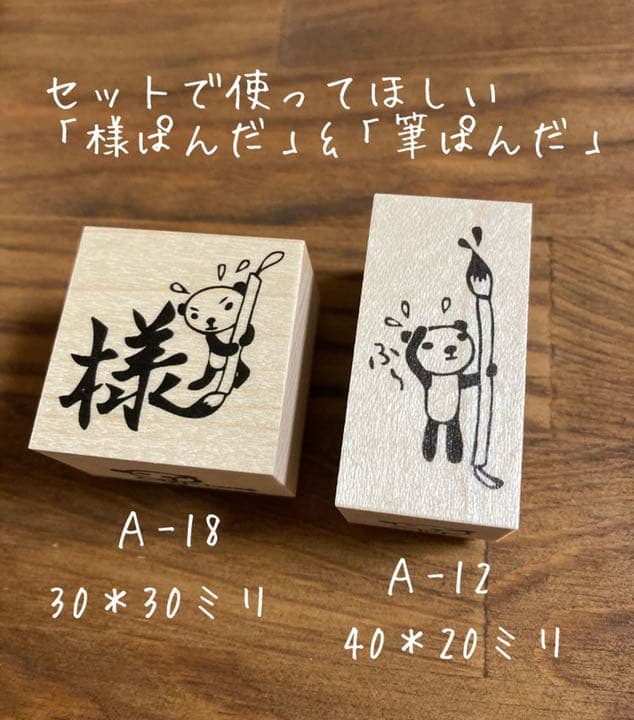 セットで使ってほしい
「様ぱんだ」&「筆ぱんだ」
様
ふ〜
A-18
30*30ミリ
A-12
40*20ミリ